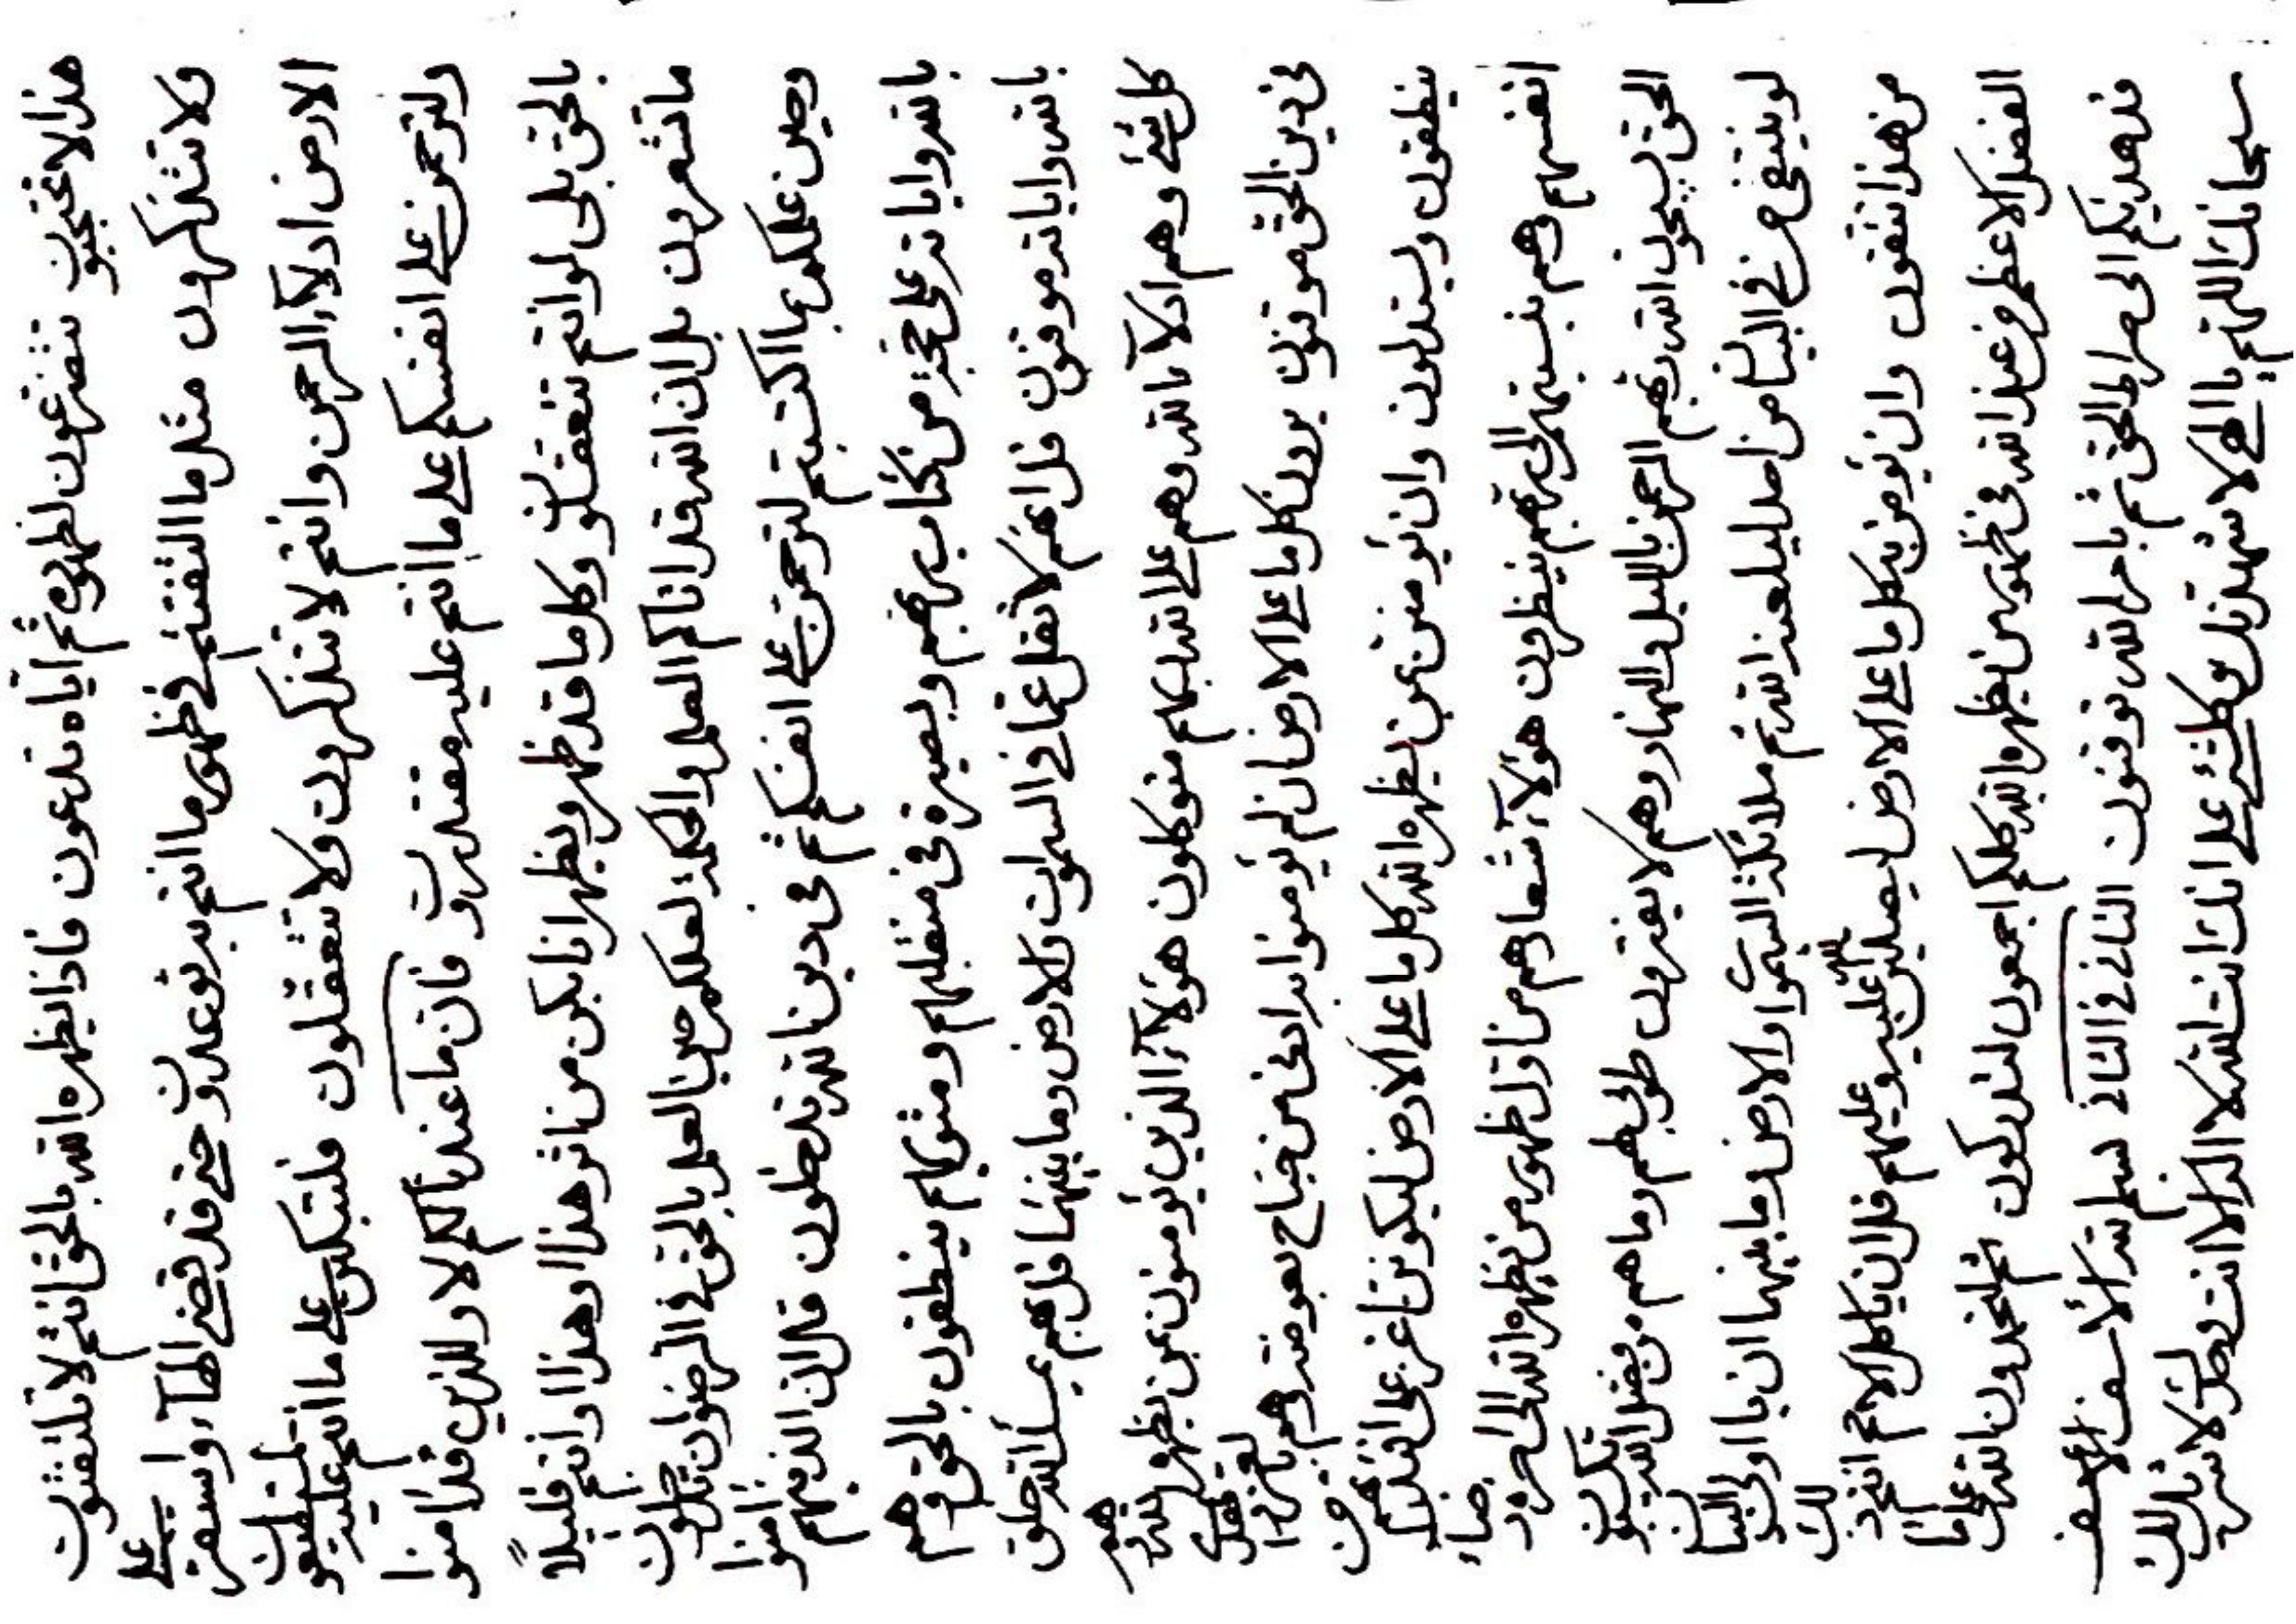 هذا لا تحتجبون تتضرعون لظهوره ثم اياه تدعون فاذا يظهره الله بالحق انتم لا تلتفتون
ولا تتذكرون مثل ما التفتتم في ظهور ما انتم به توعدون حتى قد قضى الماء واستقر على
الارض ادلاء الرحمن وانتم لا تتذكرون ولا تتعقلون فلتبكين على ما انتم عليه لمتقلبون
ولترحمن على انفسكم على ما انتم عليه مقتدرون فان ما عندنا لكم لا وللذين قد امنوا
بالحق بلى لو انتم تتعقلون وكل ما قد ظهر ويظهر انا يكن من اثر هذا اوهذا اوانتم قليلاً
ما تشعرون بل ان الله قد اتاكم العلم والحكمة لعلكم حين العلم بالحق في الرضوان تدخلون
وحين عملكم بما اكتسبتم لترحمن على انفسكم ثم في دين الله تدخلون قل ان الذينهم امنوا
بالله واياته على حجة من كتاب ربهم وبصيرة في منقلبهم ومثويهم ينطقون بالحق وهم
بالله واياته موقنون قل انتم لا تقل عما في السموات والارض وما بينهما قل هم عباد الله خلق
كل شئ وهم ادلاء بالله وهم على الله ربهم متوكلون هؤلاء الذين يؤمنون بمن يظهره الله هم
في دين الحق موقنون يردن كل ما على الارض ان لم يؤمنوا به ادنى من جناح بعوضة وهم بعزة
ينطقون ويستدلون وان يؤمنن بمن يظهره الله كل ما على الارض ليكونن اعز على افئدتهم من
انفسهم وهم بنسبتهم الى ربهم ينظرون هؤلاء شعارهم من اول ظهور من يظهره الله الى حروف
الحق يسبحون الله ربهم الرحمن بالليل والنهار وهم لا يفترون طوبى لهم وما هم من فضل الله يدركون
لو ينتفي حرف في البيان من احد ليلعنه الله ثم ملائكة السموات والارض وما بينهما ان يا اولي البيان
من هذا تتقون وان يؤمن به كل ما على الارض ليصلين الله عليه وعليهم قل ان يا كل الامم اتخذ ذلك
الفضل الاعظم من عند الله في ظهور من يظهره الله كلكم اجمعون لتدركون ثم لتحمدون الله على ما
قد هديكم الى صراط الحق ثم بامر الله توقنون الثاني في الثاني بسم الله الأسف الأسف
سبحانك اللهم يا الهي لاشهدنك وكلشئ على انك انت الله لا اله الا انت وحدك لا شريك لك